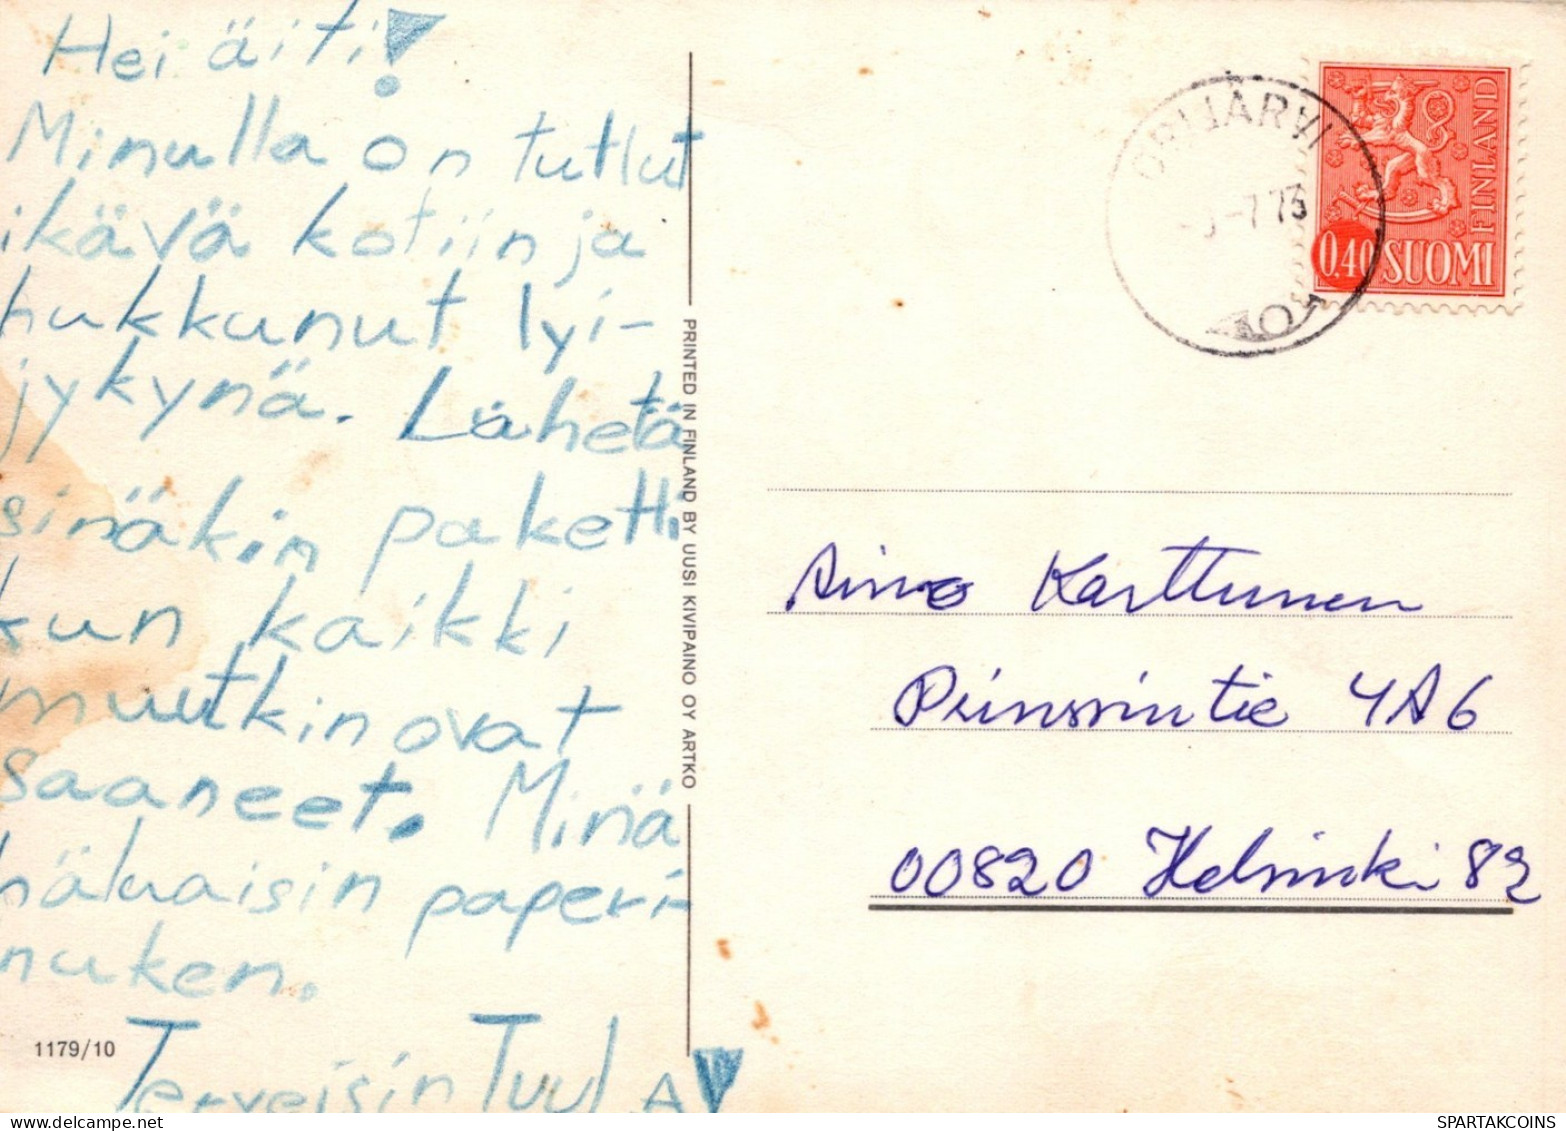 Hei äiti!
Minulla on tullut
ikävä kotiin ja
hukkunut lyi-
jykynä. Lähetä
sinäkin paketti
kun kaikki
muutkin ovat
saaneet. Minä
haluaisin paperi-
nuken.
Terveisin Tuula!
1179/10
PRINTED IN FINLAND BY UUSI KIVIPAINO OY ARTKO
ORIJÄRVI
-7 73
0,40 SUOMI
FINLAND
Aino Karttunen
Prinssintie 4A6
00820 Helsinki 82
SPARTAKCOINS